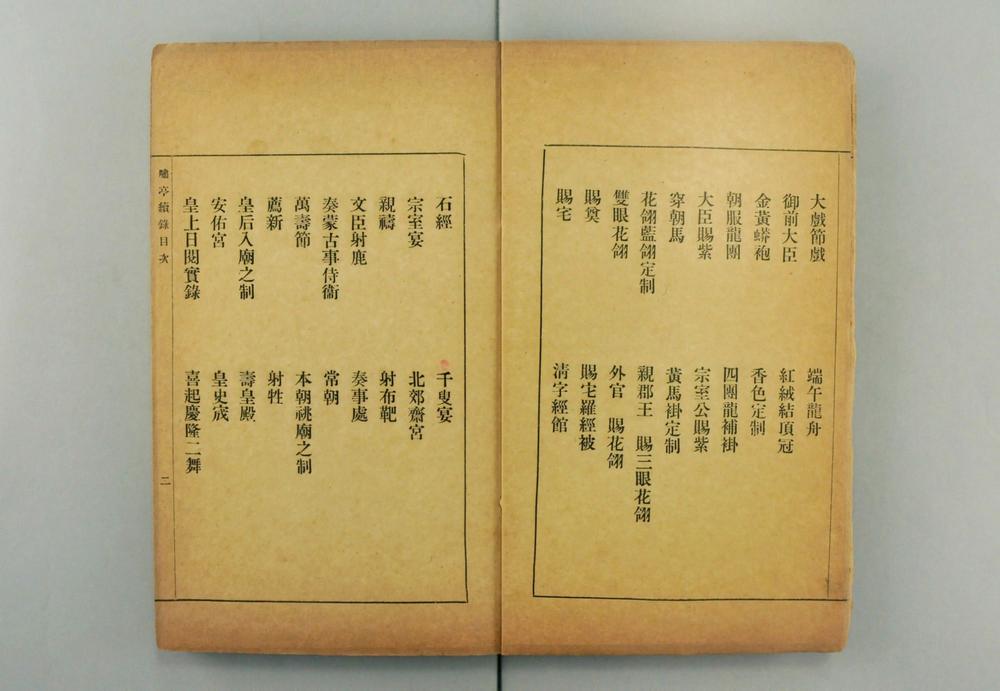 大戲節戲　端午龍舟
御前大臣　紅絨結項冠
金黃蟒袍　香色定制
朝服龍團　四團龍補褂
大臣賜紫　宗室公賜紫
穿朝馬　黃馬褂定制
花翎藍翎定制　親郡王　賜三眼花翎
雙眼花翎　外官　賜花翎
賜奠　賜宅羅經被
賜宅　淸字經館
石經　千叟宴
宗室宴　北郊齋宮
親禱　射布靶
文臣射鹿　奏事處
奏蒙古事侍衞　常朝
萬壽節　本朝祧廟之制
薦新　射牲
皇后入廟之制　壽皇殿
安佑宮　皇史宬
皇上日閱實錄　喜起慶隆二舞
嘯亭續錄目次　二